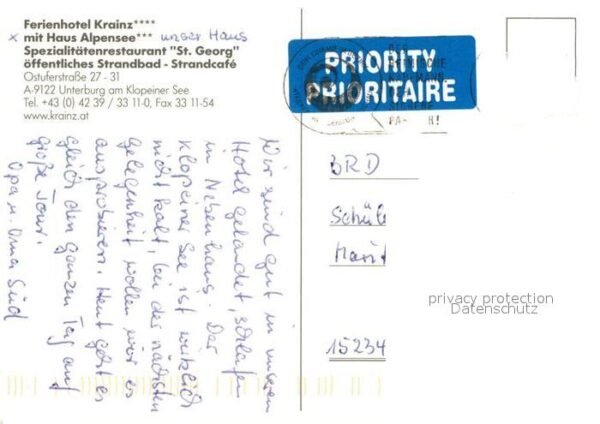 Ferienhotel Krainz****
x mit Haus Alpensee*** unser Haus
Spezialitätenrestaurant "St. Georg"
öffentliches Strandbad - Strandcafé
Ostuferstraße 27 - 31
A-9122 Unterburg am Klopeiner See
Tel. +43 (0) 42 39 / 33 11-0, Fax 33 11-54
www.krainz.at
Wir sind gut in unserem
Hotel gelandet, schlafen
im Nebenhaus. Der
Klopeiner See ist wirklich
nicht kalt, bei der nächsten
Gelegenheit wollen wir es
ausprobieren. Heut geht es
gleich den ganzen Tag auf
große Tour.
Opa u. Oma Süd
PRIORITY
PRIORITAIRE
BRD
Schül
15234
privacy protection
Datenschutz